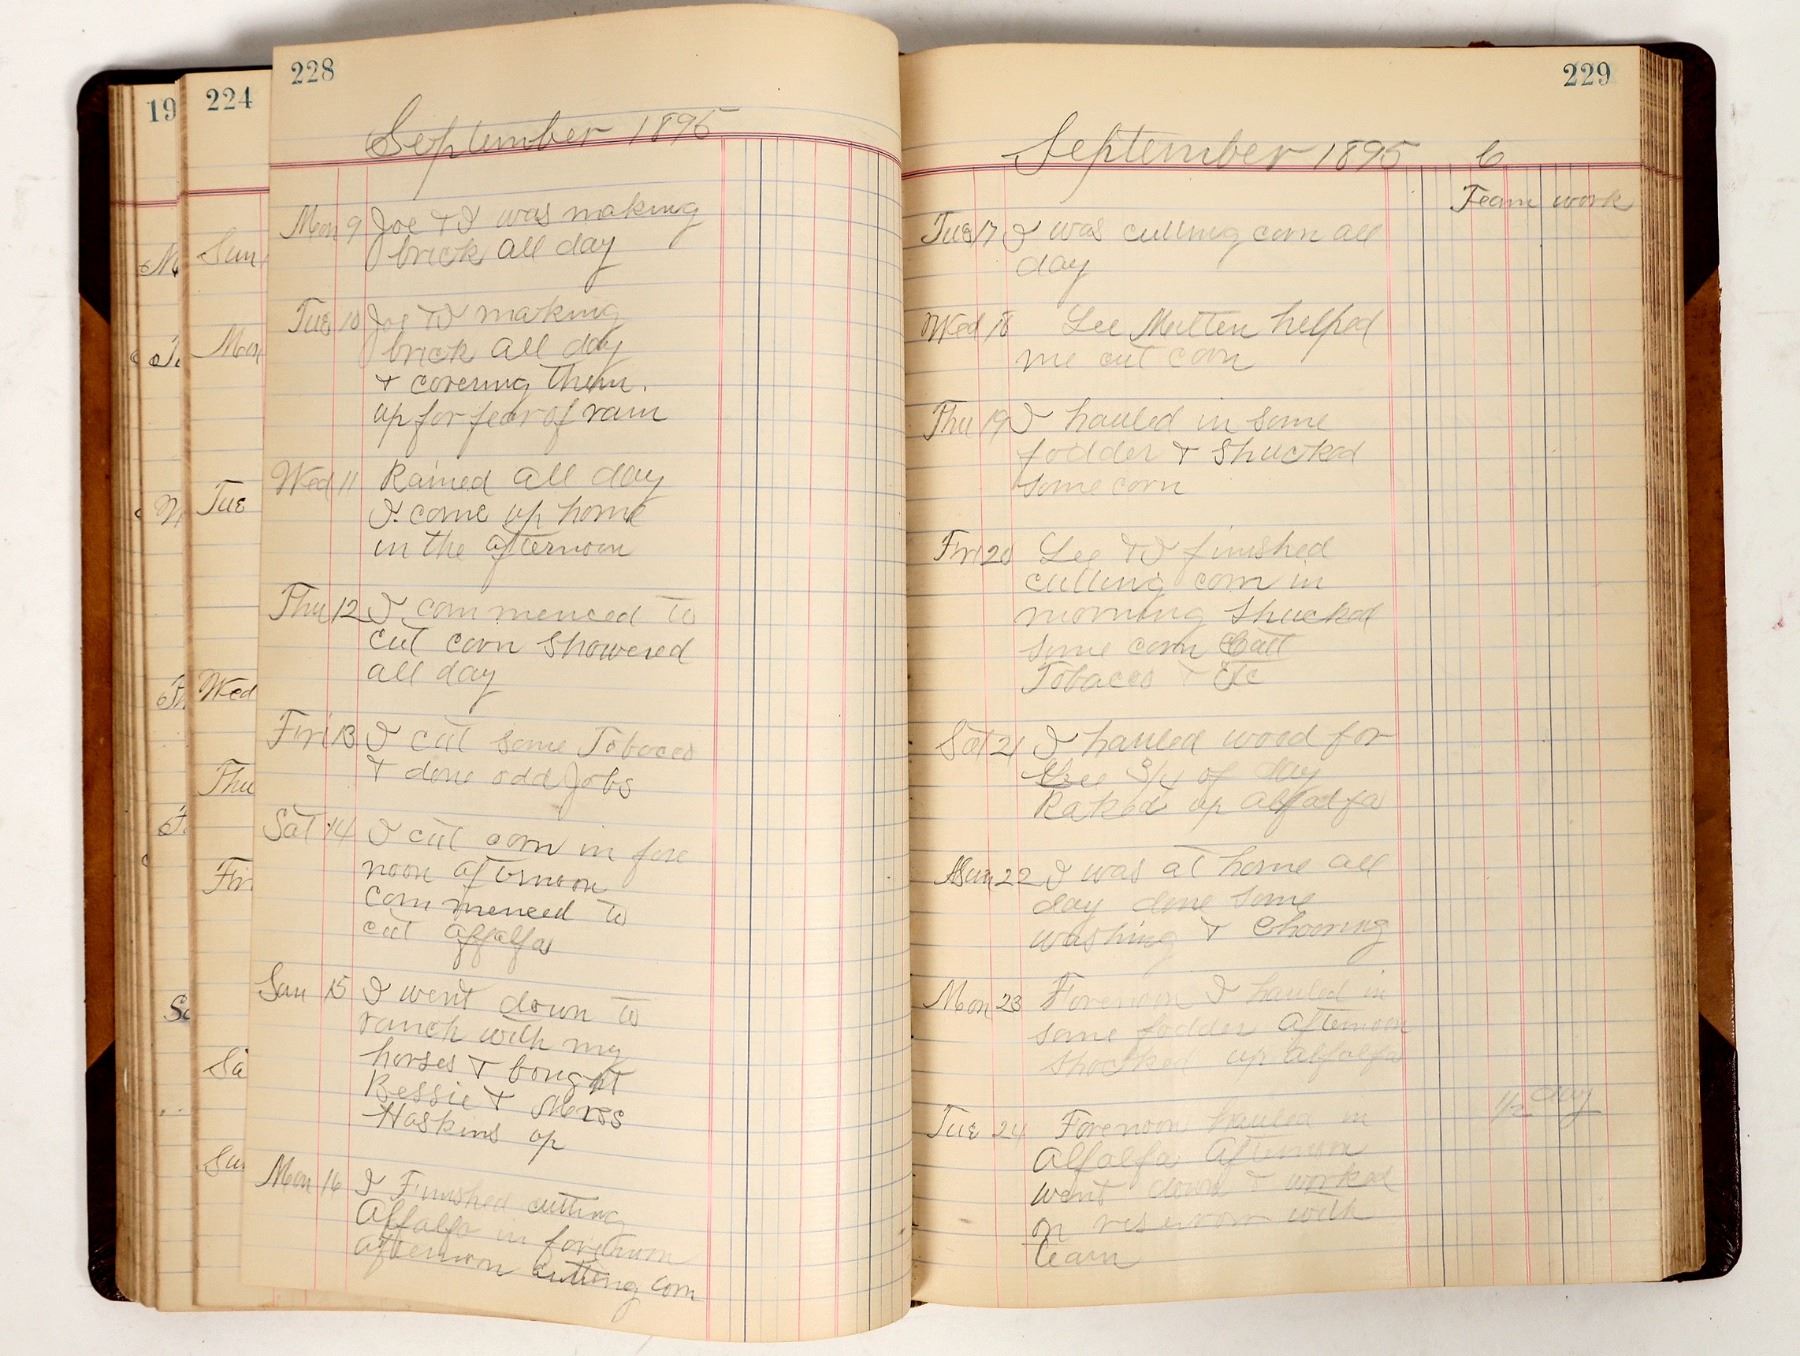 19
224
Sun
Mon
Tue
Wed
Thu
Fri
Sa
Su
228
September 1895
Mon 9 Joe & I was making
brick all day
Tue 10 Joe & I making
brick all day
& covering them.
up for fear of rain
Wed 11 Rained all day
I come up home
in the afternoon
Thu 12 I commenced to
cut corn showered
all day
Fri 13 I cut some Tobacco
& done odd Jobs
Sat 14 I cut corn in fore
noon afternoon
commenced to
cut Alfalfa
Sun 15 I went down to
ranch with my
horses & bought
Bessie &
Haskins up
Mon 16 I Finished cutting
Alfalfa in forenoon
afternoon cutting corn
229
September 1895 6
Team work
Tue 17 I was cutting corn all
day
Wed 18 Lee helped
me cut corn
Thu 19 I hauled in some
fodder & Shucked
some corn
Fri 20 Lee & I finished
cutting corn in
morning Shucked
some corn
Tobacco & Etc
Sat 21 I hauled wood for
3/4 of day
Raked up alfalfa
Sun 22 I was at home all
day done some
washing &
Mon 23 Forenoon I hauled in
some fodder afternoon
shocked up alfalfa
1/2 day
Tue 24 Forenoon hauled in
Alfalfa Afternoon
went down & worked
on reservoir with
team